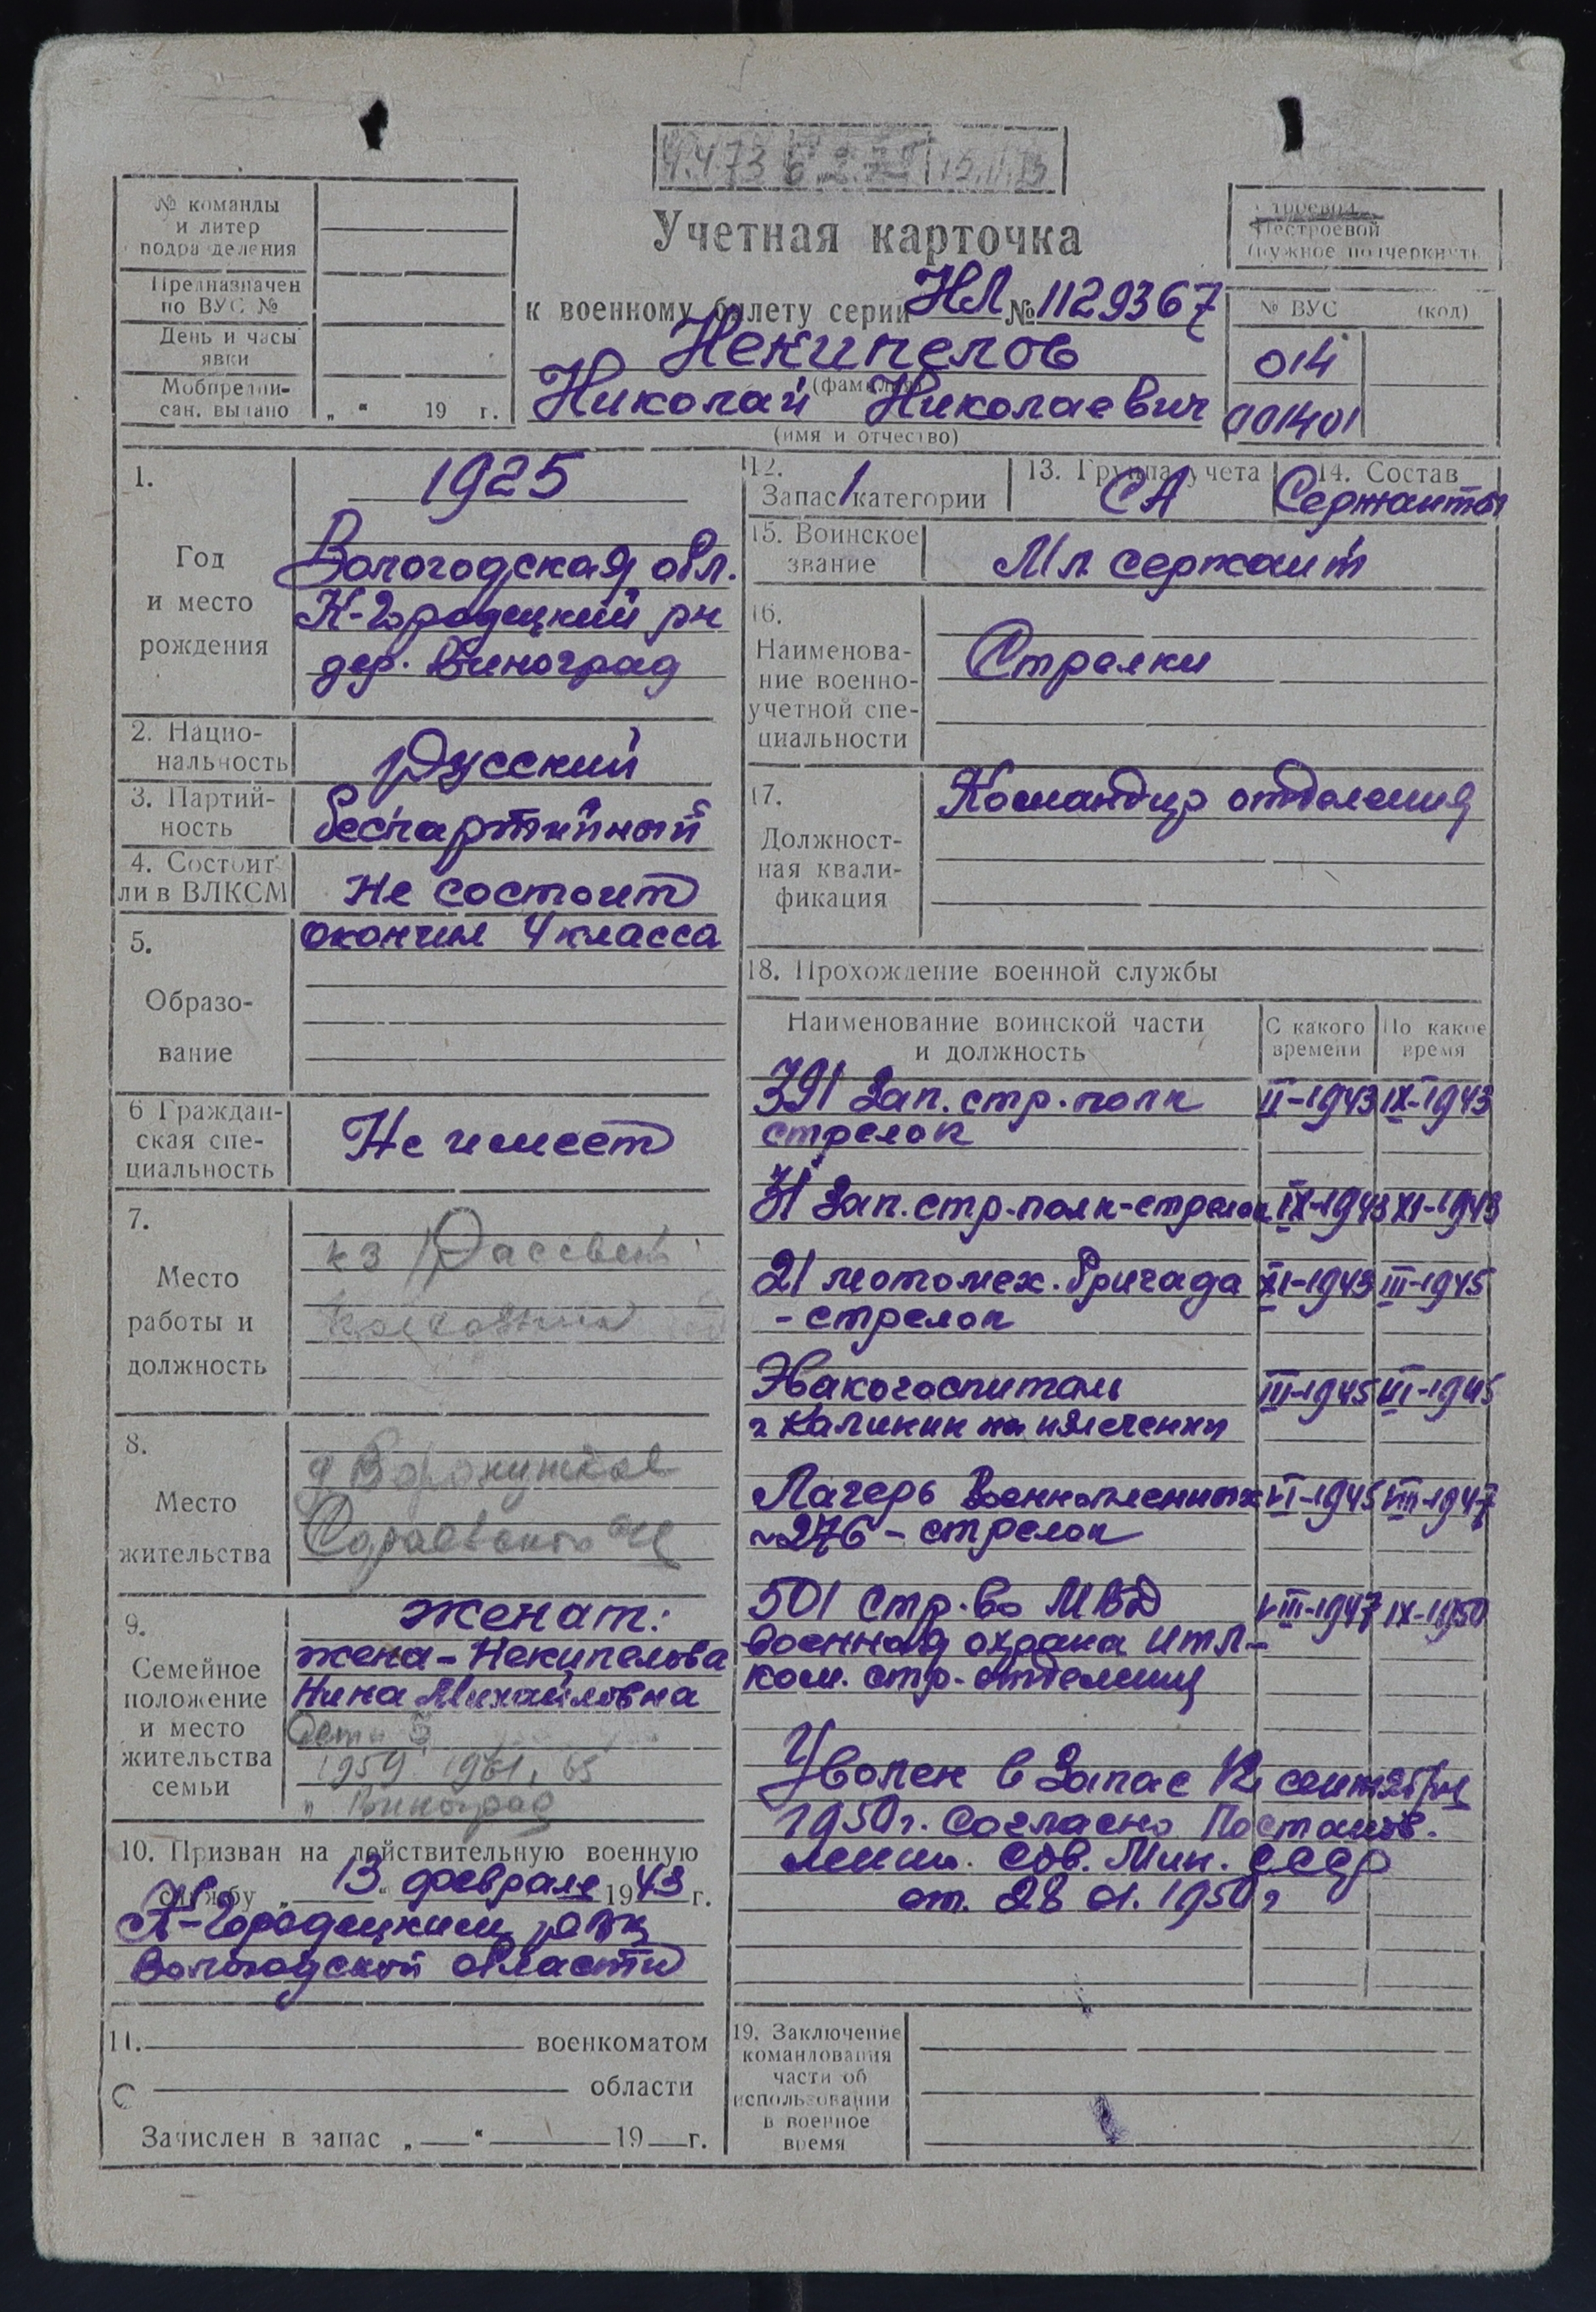 4.4.73
№ команды
и литер
подразделения
Предназначен
по ВУС №
День и часы
явки
Мобпредпи-
сан. выдано „ “ 19 г.
Учетная карточка
к военному билету серии НЛ № 1129367
Некипелов
(фамилия)
Николай Николаевич
(имя и отчество)
Строевой
Нестроевой
(нужное подчеркнуть
№ ВУС (код)
014
001401
1.
Год
и место
рождения
1925
Вологодская обл.
К-Городецкий рн
дер. Виноград
2. Нацио-
нальность
Русский
3. Партий-
ность
беспартийный
4. Состоит
ли в ВЛКСМ
Не состоит
5.
Образо-
вание
окончил 4 класса
6 Граждан-
ская спе-
циальность
Не имеет
7.
Место
работы и
должность
кз Рассвет
8.
Место
жительства
9.
Семейное
положение
и место
жительства
семьи
женат:
жена - Некипелова
Нина Михайловна
Дети 3
1959 1961, 65
Виноград
10. Призван на действительную военную
службу „ 13 “ февраля 1943 г.
К-Городецким рвк
Вологодской области
11. военкоматом
области
Зачислен в запас „ “ 19 г.
12.
Запас 1 категории
13. Группа учета
СА
14. Состав
Сержанты
15. Воинское
звание
Мл. сержант
16.
Наименова-
ние военно-
учетной спе-
циальности
Стрелки
17.
Должност-
ная квали-
фикация
Командир отделения
18. Прохождение военной службы
Наименование воинской части
и должность
С какого
времени
По какое
время
391 Зап. стр. полк II-1943 IX-1943
стрелок
31 Зап. стр. полк-стрелок IX-1943 XI-1943
21 мотомех. бригада XI-1943 III-1945
- стрелок
Эвакогоспиталь III-1945 VI-1945
г Калинин на излечении
Лагерь Военнопленных VI-1945 VIII-1947
№276 - стрелок
501 стр. во МВД VIII-1947 IX-1950
военная охрана ИТЛ-
ком. стр. отделения
Уволен в Запас 12 сентября
1950 г. Согласно Постанов-
лению. Сов. Мин. СССР
от. 28 01. 1950 г
19. Заключение
командования
части об
использовании
в военное
время